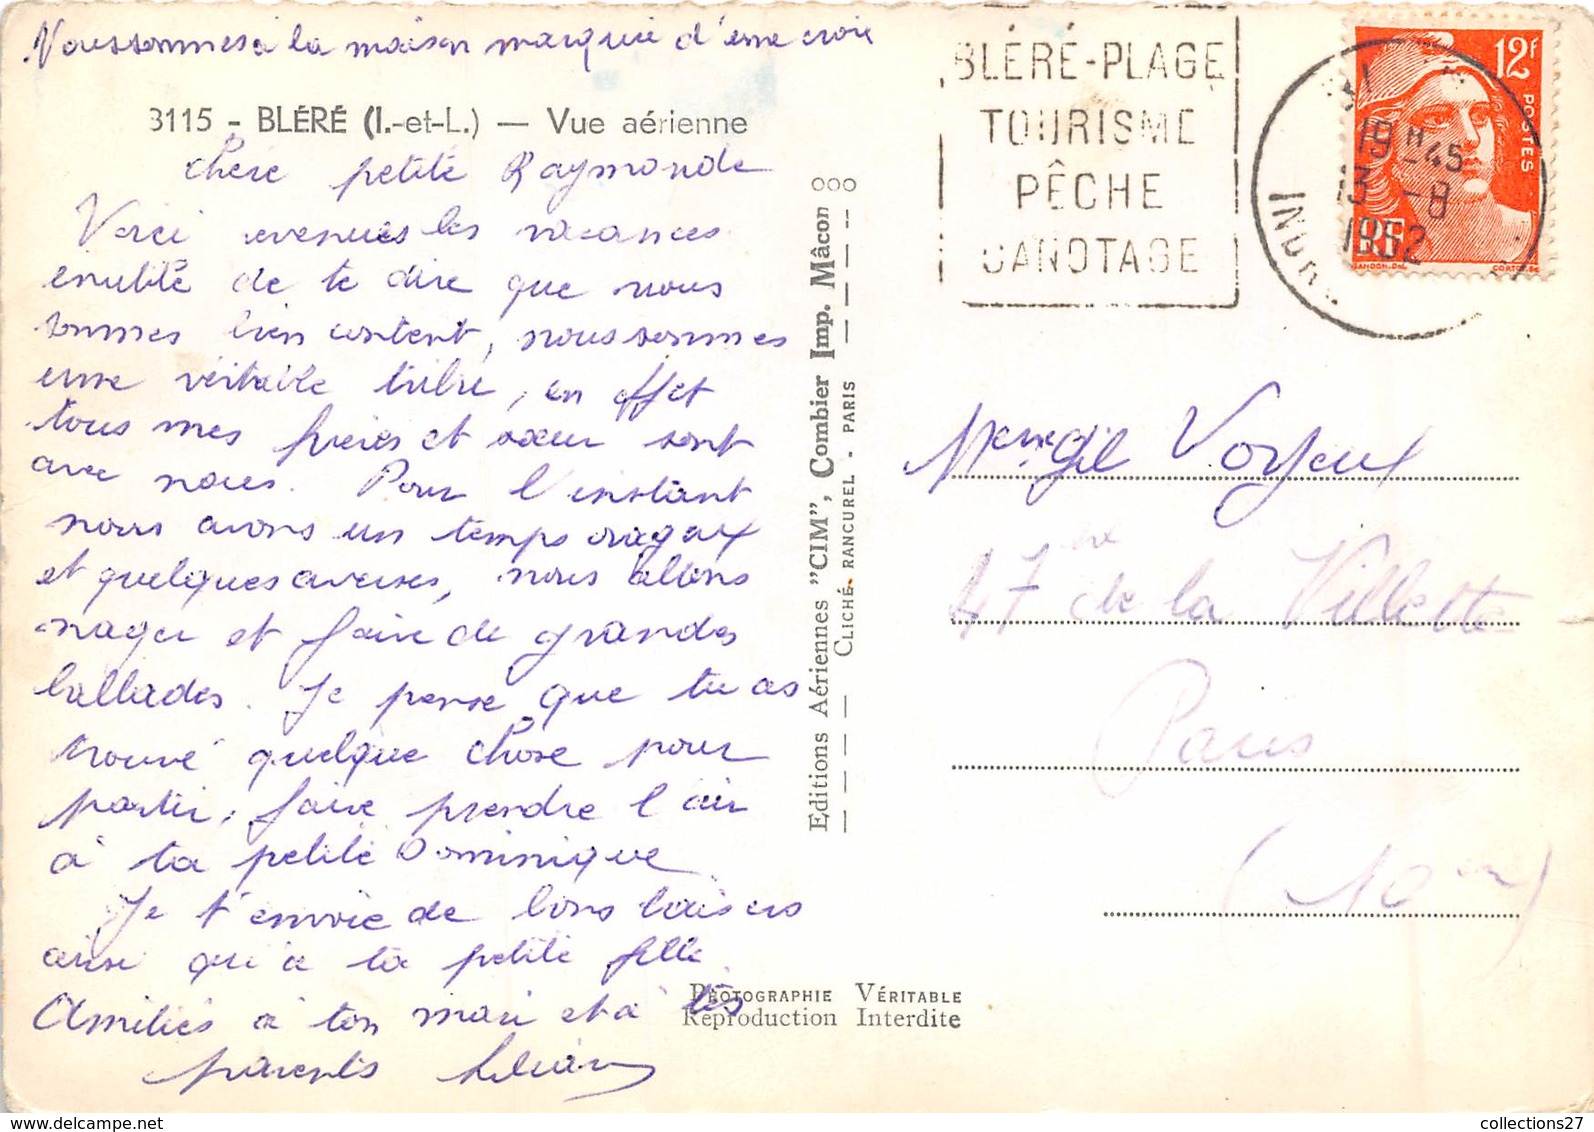 Nous sommes à la maison marquée d'une croix
3115 - BLÉRÉ (I.-et-L.) — Vue aérienne
Chère petite Raymonde
Voici revenues les vacances
inutile de te dire que nous
sommes bien content, nous sommes
une véritable tribu, en effet
tous mes frères et sœur sont
avec nous. Pour l'instant
nous avons un temps orageux
et quelques averses, nous allons
nager et faire de grandes
ballades. Je pense que tu as
trouvé quelque chose pour
partir, faire prendre l'air
à ta petite Dominique
Je t'envoie de bons baisers
ainsi qu'à ta petite fille
Amitiés à ton mari et à tes
parents Liliane
Editions Aériennes "CIM", Combier Imp. Mâcon
CLICHÉ RANCUREL - PARIS
PHOTOGRAPHIE VÉRITABLE
Reproduction Interdite
BLÉRÉ-PLAGE
TOURISME
PÊCHE
CANOTAGE
19H-45
13-8
1952
INDR
12F
POSTES
RF
GANDON.DEL
Gil Voyeux
47 de la Villette
Paris
(10
collections27